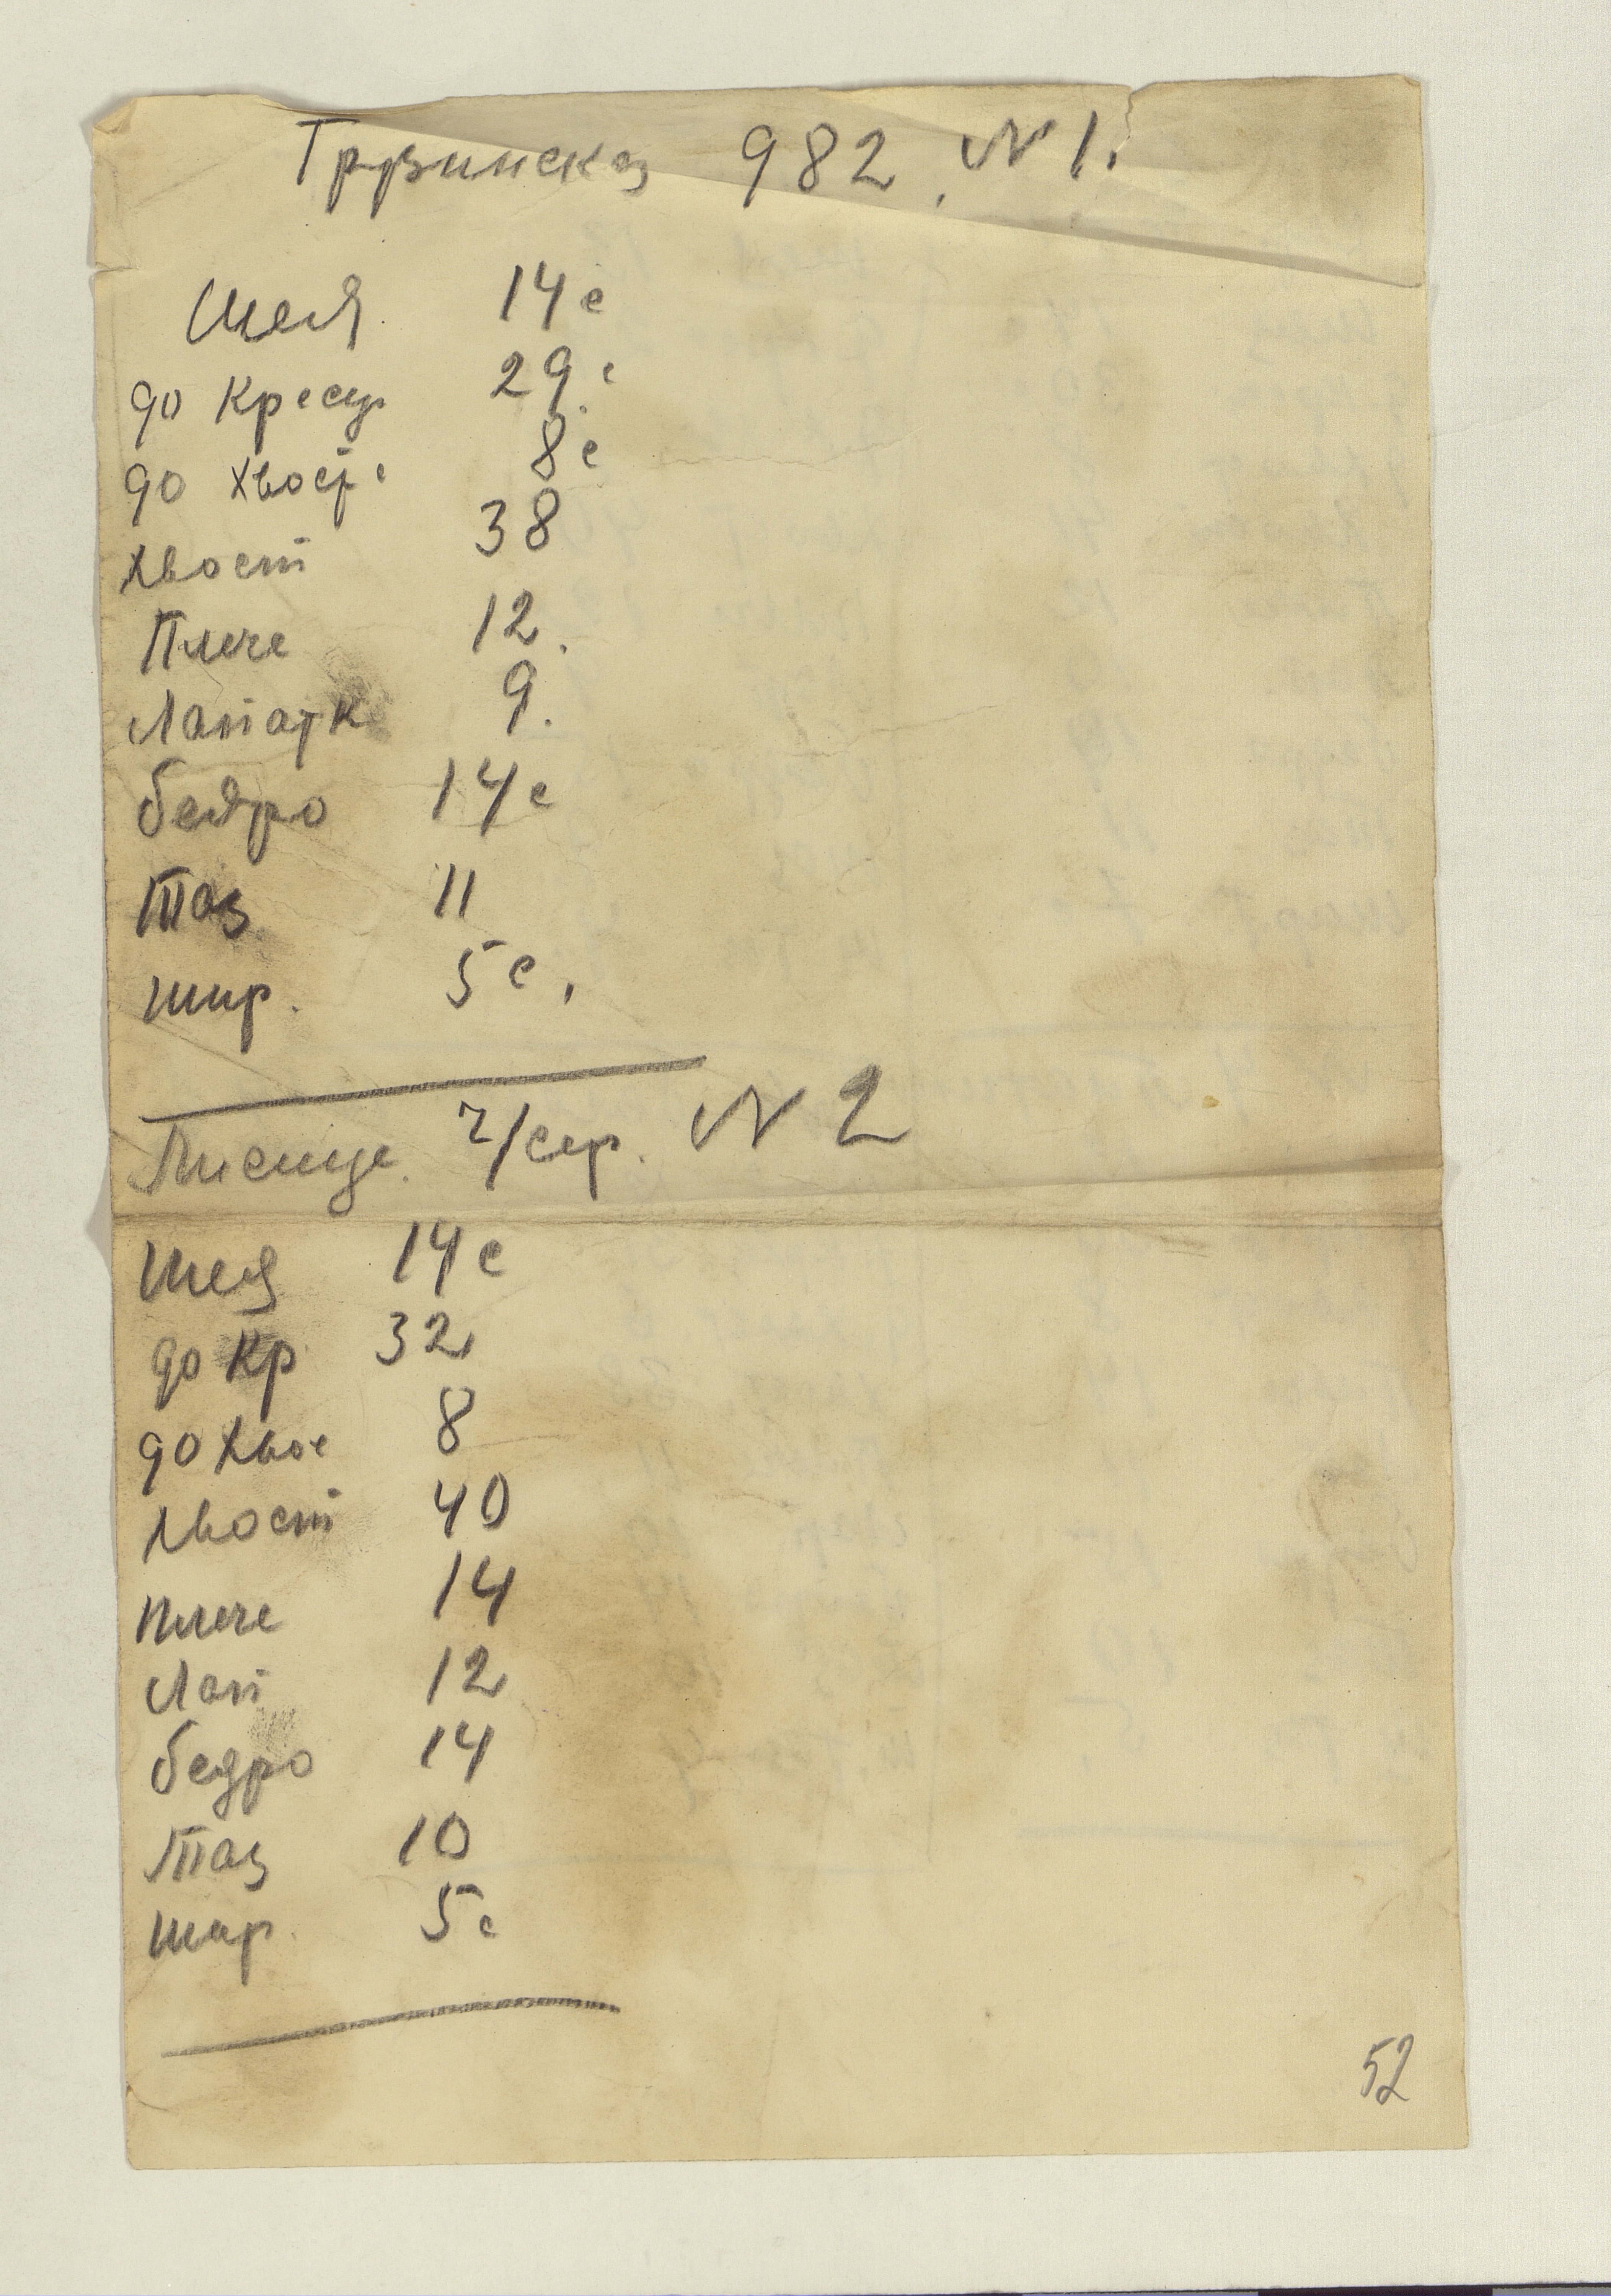 Грузинская 982, N 1.
Шея. 14 с
до Крест 29 с
до хвоста 8 с
хвост 38
Плече 12.
Лопатк 9.
бедро 14 с
Таз 11
шир. 5 с,
Лисица. ч/сер. N 2
Шея 14 с
до Кр 32
до хвос 8
хвост 40
плече 14
Лоп 12
бедро 14
Таз 10
шир. 5 с
52